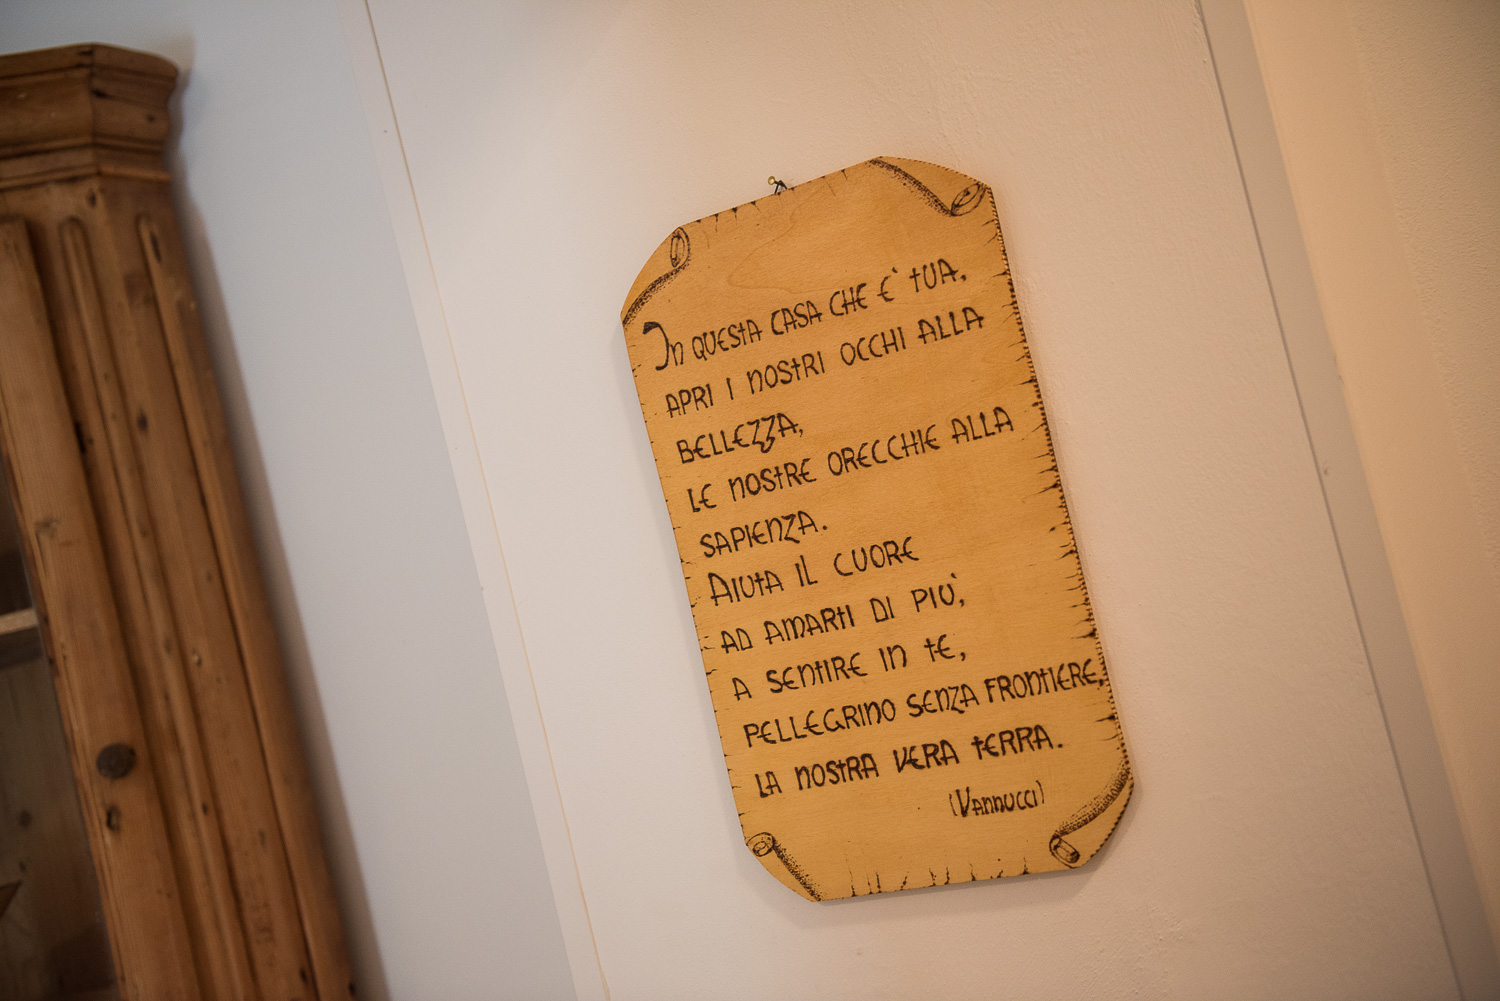 In QUESTA CASA CHE E' TUA,
APRI I NOSTRI OCCHI ALLA
BELLEZZA,
LE NOSTRE ORECCHIE ALLA
SAPIENZA.
AIUTA IL CUORE
AD AMARTI DI PIU',
A SENTIRE IN TE,
PELLEGRINO SENZA FRONTIERE,
LA NOSTRA VERA TERRA.
(VANNUCCI)